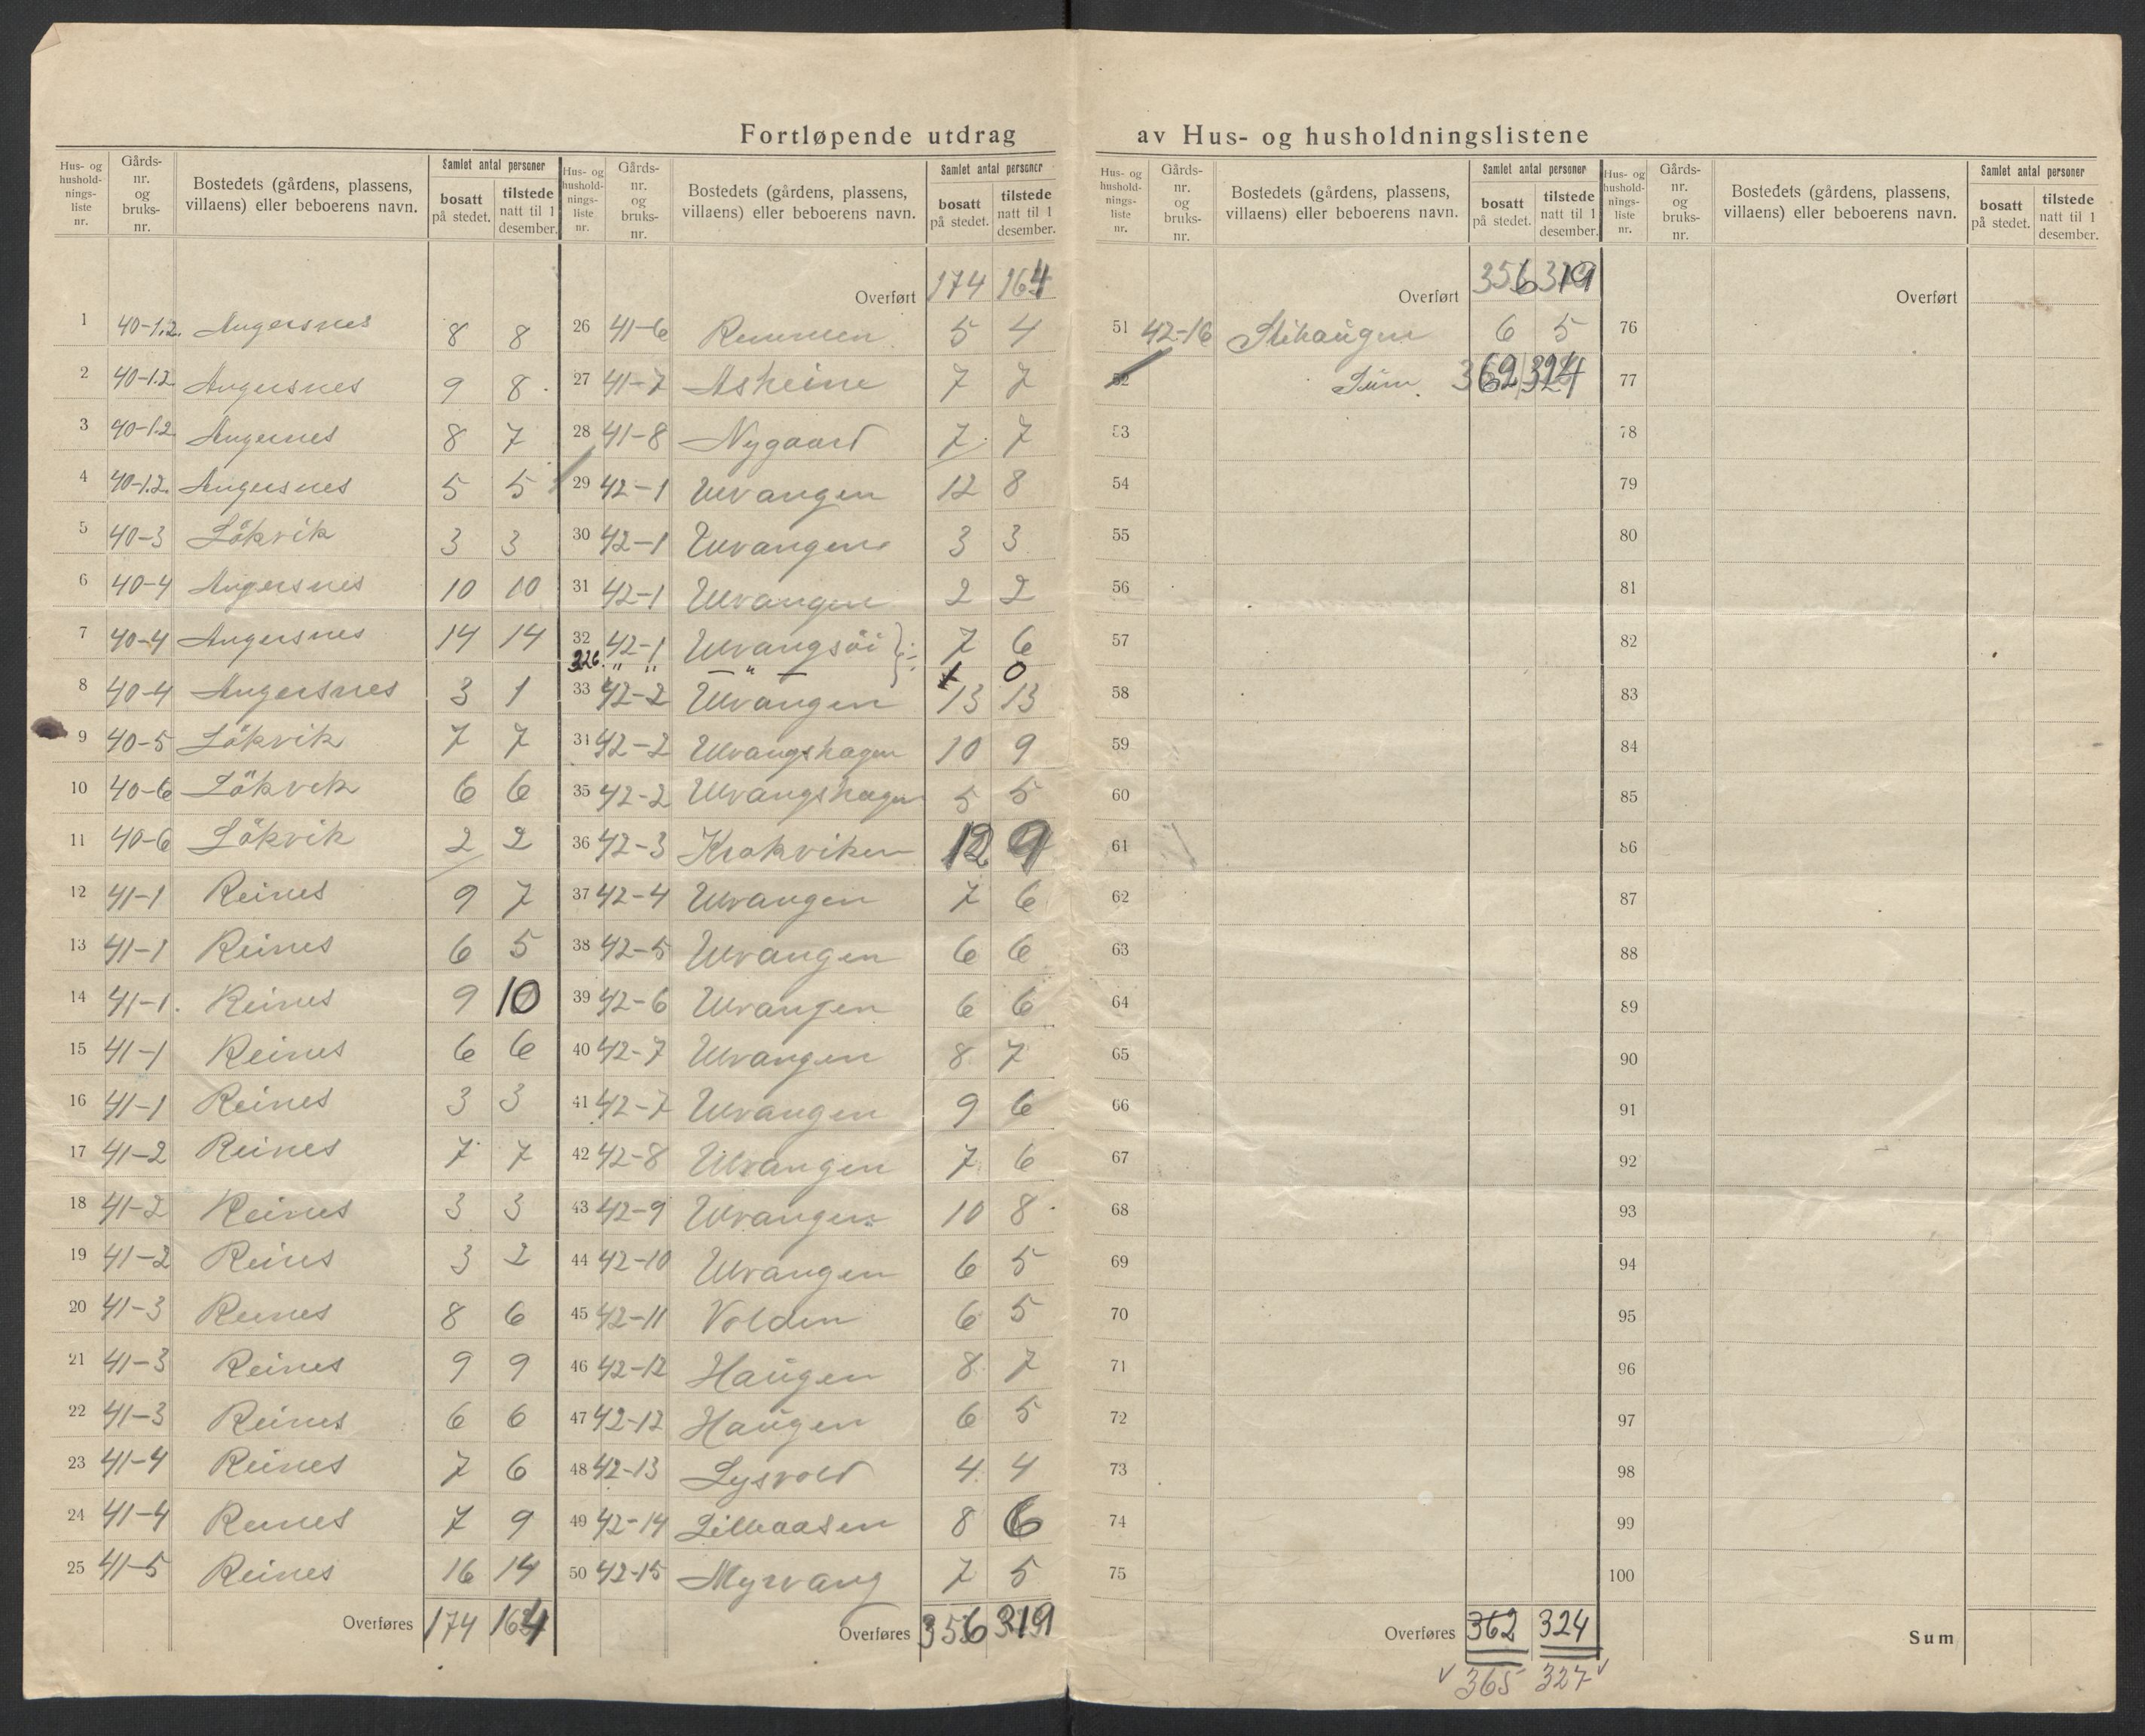 Fortløpende utdrag av Hus- og husholdningslistene
Hus- og hushold-nings-liste nr. | Gårds-nr. og bruks-nr. | Bostedets (gårdens, plassens, villaens) eller beboerens navn. | Samlet antal personer | bosatt på stedet. | tilstede natt til 1 desember.
1 40-1.2. Angersnes 8 8
2 40-1.2 Angersnes 9 8
3 40-1.2 Angernes 8 7
4 40-1.2. Angersnes 5 5
5 40-3 Lökvik 3 3
6 40-4 Angersnes 10 10
7 40-4 Angersnes 14 14
8 40-4 Angersnes 3 1
9 40-5 Lökvik 7 7
10 40-6 Lökvik 6 6
11 40-6 Lökvik 2 2
12 41-1 Reines 9 7
13 41-1 Reines 6 5
14 41-1. Reines 9 10
15 41-1 Reines 6 6
16 41-1 Reines 3 3
17 41-2 Reines 7 7
18 41-2 Reines 3 3
19 41-2 Reines 3 2
20 41-3 Reines 8 6
21 41-3 Reines 9 9
22 41-3 Reines 6 6
23 41-4 Reines 7 6
24 41-4 Reines 7 9
25 41-5 Reines 16 14
Overføres 174 164
Hus- og hushold-nings-liste nr. | Gårds-nr. og bruks-nr. | Bostedets (gårdens, plassens, villaens) eller beboerens navn. | Samlet antal personer | bosatt på stedet. | tilstede natt til 1 desember.
Overført 174 164
26 41-6 Remmen 5 4
27 41-7 Asheim 7 7
28 41-8 Nygaard 7 7
29 42-1 Ulvangen 12 8
30 42-1 Ulvangen 3 3
31 42-1 Ulvangen 2 2
32 42-1 Ulvangsöi 7 6
32b. " " — " — 0
33 42-2 Ulvangen 13 13
34 42-2 Ulvangshagen 10 9
35 42-2 Ulvangshagen 5 5
36 42-3 Krokviken 12 9
37 42-4 Ulvangen 7 6
38 42-5 Ulvangen 6 6
39 42-6 Ulvangen 6 6
40 42-7 Ulvangen 8 7
41 42-7 Ulvangen 9 6
42 42-8 Ulvangen 7 6
43 42-9 Ulvangen 10 8
44 42-10 Ulvangen 6 5
45 42-11 Volden 6 5
46 42-12 Haugen 8 7
47 42-12 Haugen 6 5
48 42-13 Lysvold 4 4
49 42-14 Lilleaasen 8 6
50 42-15 Myrvang 7 5
Overføres 356 319
Hus- og hushold-nings-liste nr. | Gårds-nr. og bruks-nr. | Bostedets (gårdens, plassens, villaens) eller beboerens navn. | Samlet antal personer | bosatt på stedet. | tilstede natt til 1 desember.
Overført 356 319
51 42-16 Stihaugen 6 5
52 Sum 362 324
53
54
55
56
57
58
59
60
61
62
63
64
65
66
67
68
69
70
71
72
73
74
75
Overføres 362 324
365 327
Hus- og hushold-nings-liste nr. | Gårds-nr. og bruks-nr. | Bostedets (gårdens, plassens, villaens) eller beboerens navn. | Samlet antal personer | bosatt på stedet. | tilstede natt til 1 desember.
Overført
76
77
78
79
80
81
82
83
84
85
86
87
88
89
90
91
92
93
94
95
96
97
98
99
100
Sum